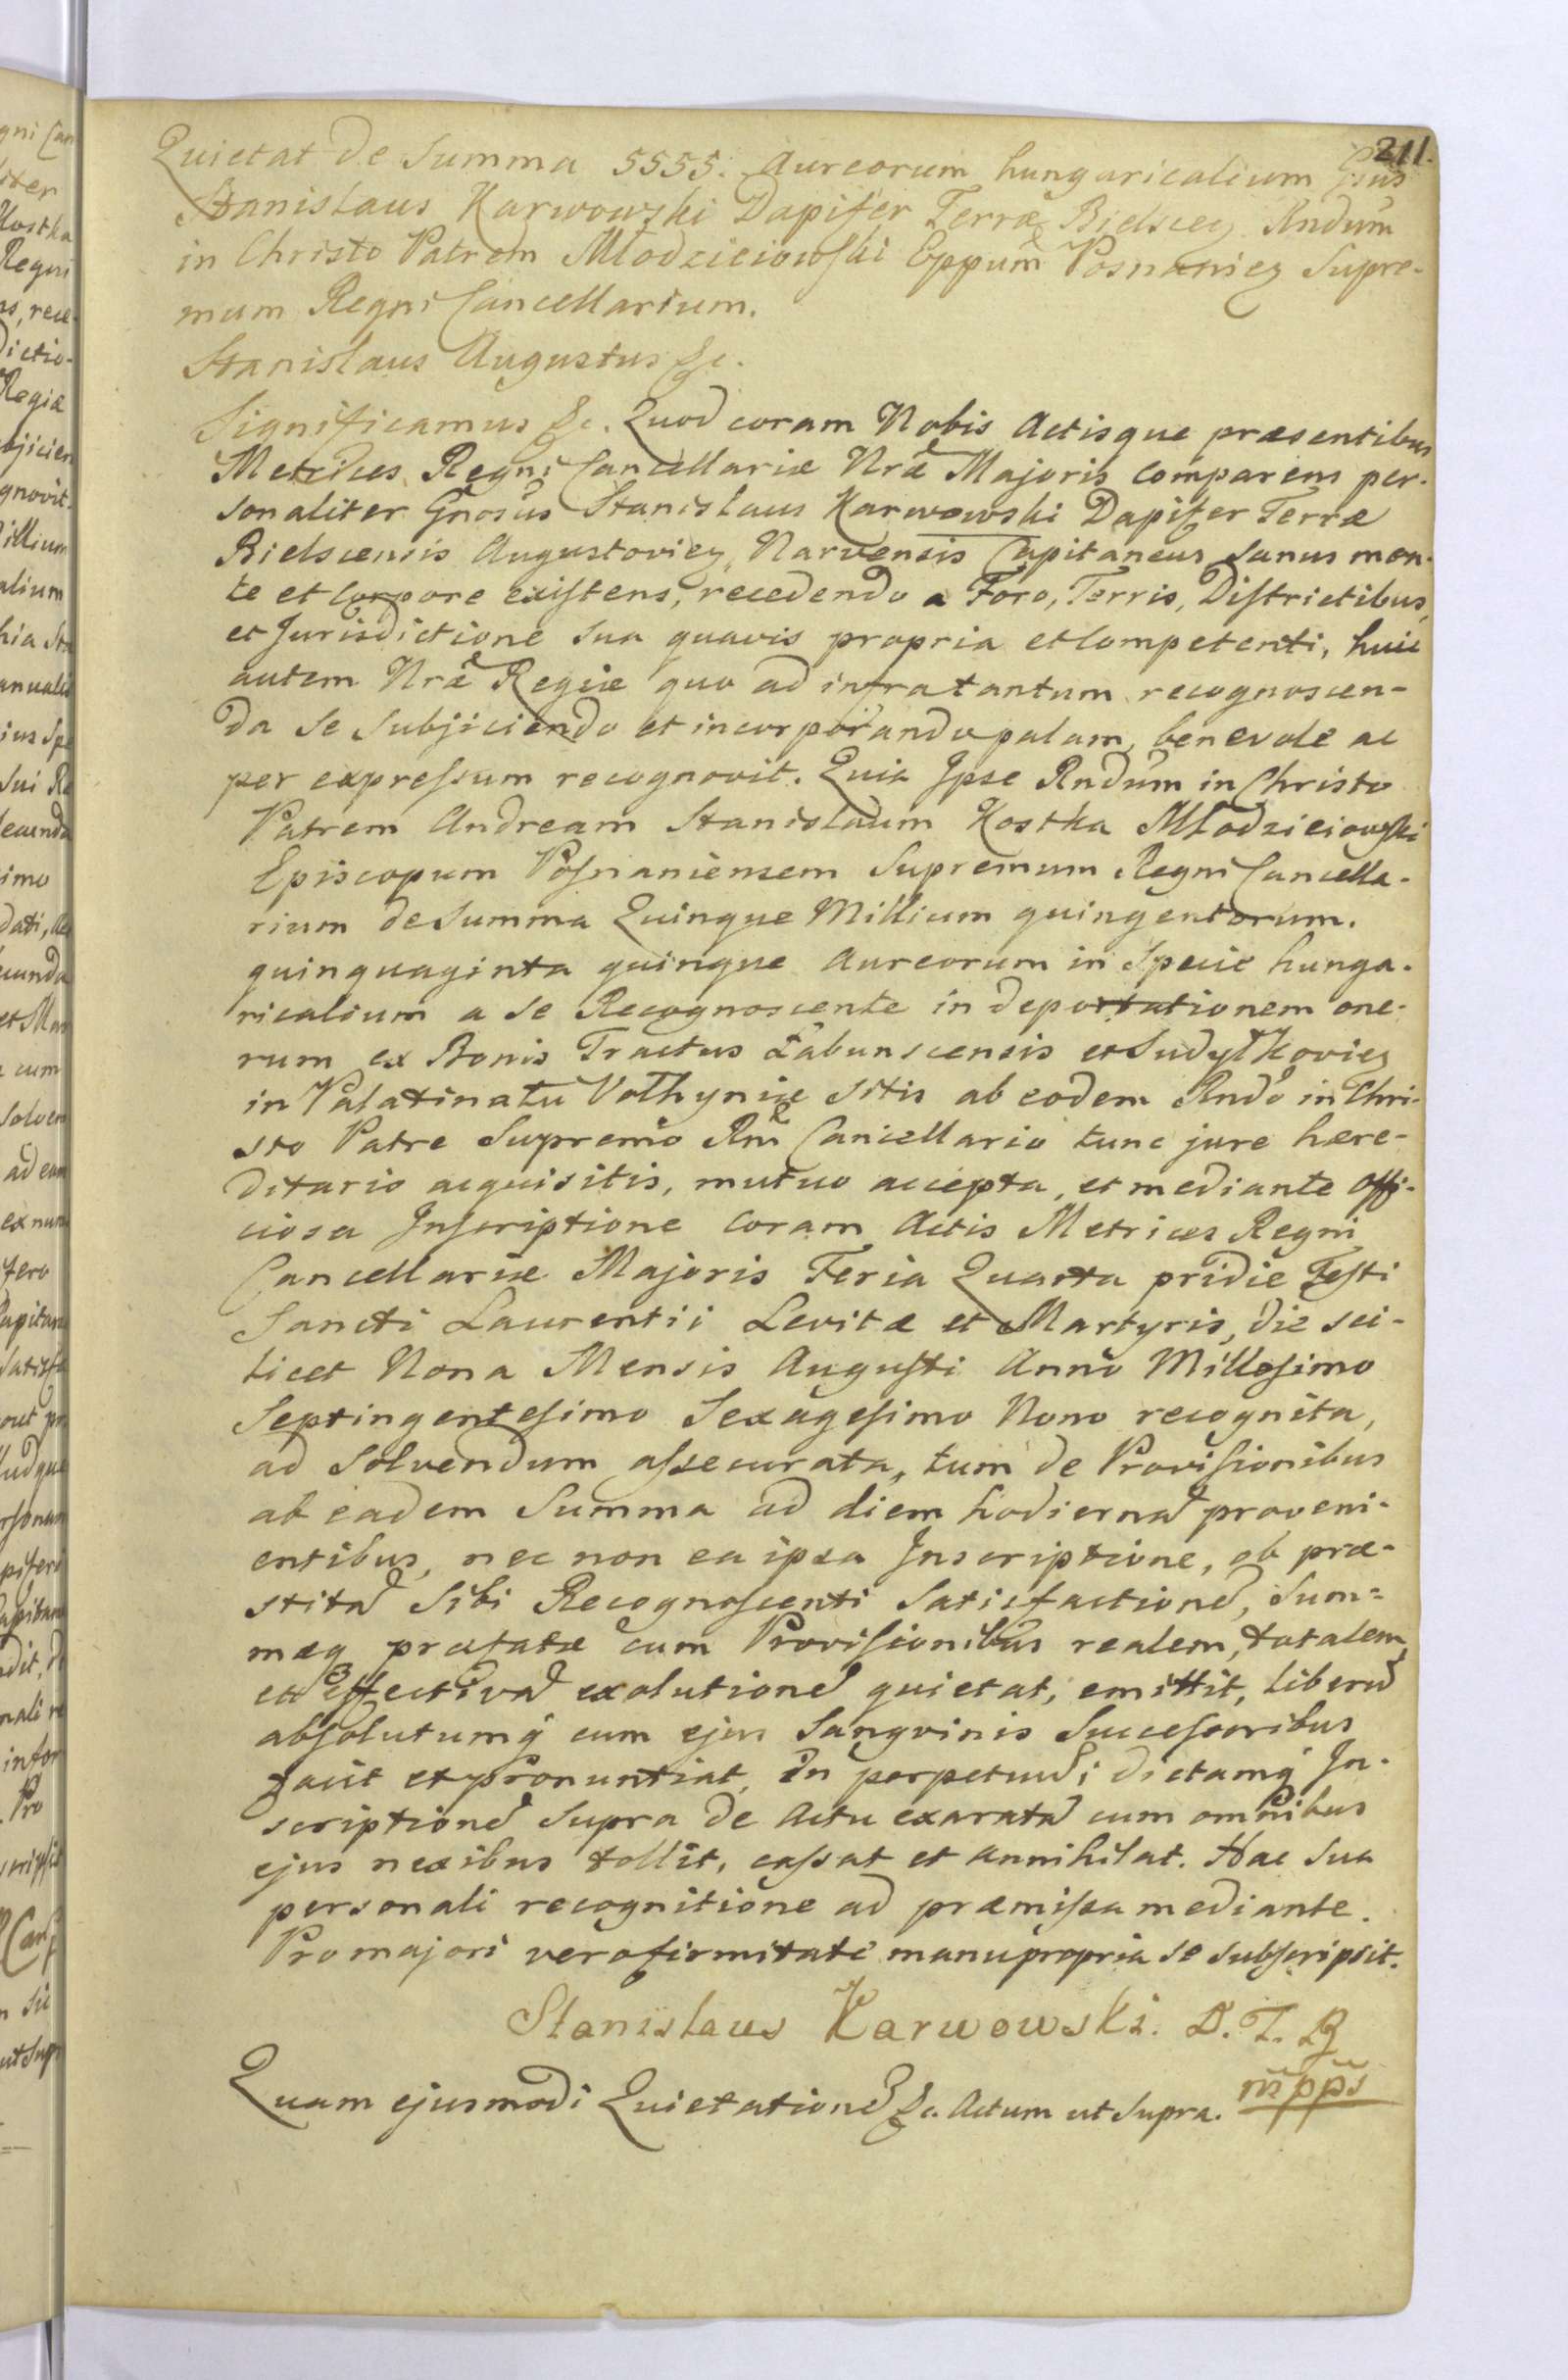 211.
Quietat de Summa 5555. Aureorum hungaricalium Gsus
Stanislaus Karwowski Dapifer Terræ Bielscen Rndum
in Christo Patrem Młodzieiowski Eppum Posnanien Supre-
mum Regni Cancellarium.
Stanislaus Augustus &c.
Significamus &c. Quod coram Nobis Actisque præsentibus
Metrices Regni Cancellariæ Nræ Majoris Comparens per-
sonaliter Gnosus Stanislaus Karwowski Dapifer Terræ
Bielscensis Augustovien, Narvensis Capitaneus Sanus men-
te et Corpore existens, recedendo a Foro, Terris, Districtibus,
et Jurisdictione Sua quavis propria et Competenti, huic
autem Nræ Regiæ quo ad infratantum recognoscen-
da se Subjiciendo et incorporando palam, benevole ac
per expressum recognovit. Quia Ipse Rndum in Christo
Patrem Andream Stanislaum Kostka Młodzieiowski
Episcopum Posnaniensem Supremum Regni Cancella-
rium de Summa Quinque Millium quingentorum.
quinquaginta quinque Aureorum in Specie hunga-
ricalium a Se Recognoscente in deportationem one-
rum ex Bonis Tractus Łabunscensis et Sudyłkovien
in Palatinatu Volhyniæ Sitis ab eodem Rndo in Chri-
sto Patre Supremo Rni Cancellario tunc jure hære-
ditario acquisitis, mutuo accepta, et mediante Offi-
ciosa Inscriptione Coram Actis Metrices Regni
Cancellariæ Majoris Feria Quarta pridie Festi
Sancti Laurentii Levitæ et Martyris, die sci-
licet Nona Mensis Augusti Anno Millesimo
Septingentesimo Sexagesimo Nono recognita,
ad Solvendum assecurata, tum de Provisionibus
ab eadem Summa ad diem hodiernã proveni-
entibus, nec non ea ipsa Inscriptione, ob præ-
stitã Sibi Recognoscenti Satisfactionẽ, Sum-
mæq præfatæ cum Provisionibus realem, totalem,
et effectivã exolutionẽ quietat, emittit, liberũ
absolutumq cum ejus Sangvinis Successoribus
facit et pronuntiat, in perpetuũ; dictamq In-
scriptionẽ Supra de Actu exaratã cum omnibus
ejus nexibus tollit, cassat et annihilat. Hac Sua
personali recognitione ad præmissa mediante.
Pro majori vero firmitate manu propria se subscripsit.
Stanislaus Karwowski. D. T. B
mpps
Quam ejusmodi Quietationẽ &c. Actum ut Supra.